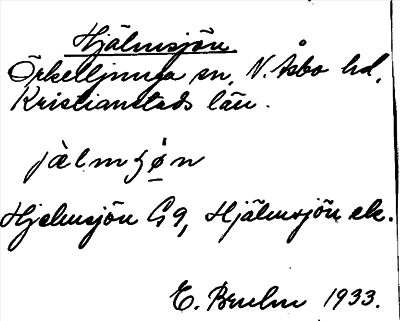 Hjälmsjön.
Örkelljunga sn. N. Åsbo hd.
Kristianstads län.
jælmʃøn
Hjelmsjön G9, Hjälmsjön ek.
1933.